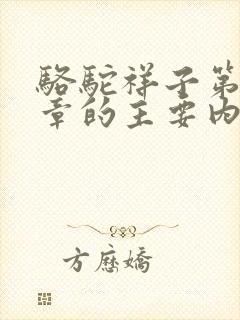 駱駝祥子第
章的主要内
方應嬌